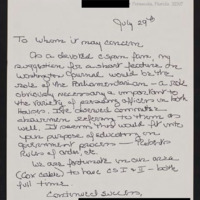 July 29th
To Whom it may concern
As a devoted cspan fan, my
suggestion for a short feature on
Washington Journal would be the
role of the Parliamentarian - a job
obviously necessary & important to
the variety of presiding officers in both
Houses. I've noticed comments
showing referring to them as
well. It seems this would fit into
your purpose of educating on
government process — Roberts
Rules of order, etc.
We are fortunate in our area
(Cox cable) to have CS I & II - both
full time.
Continued success